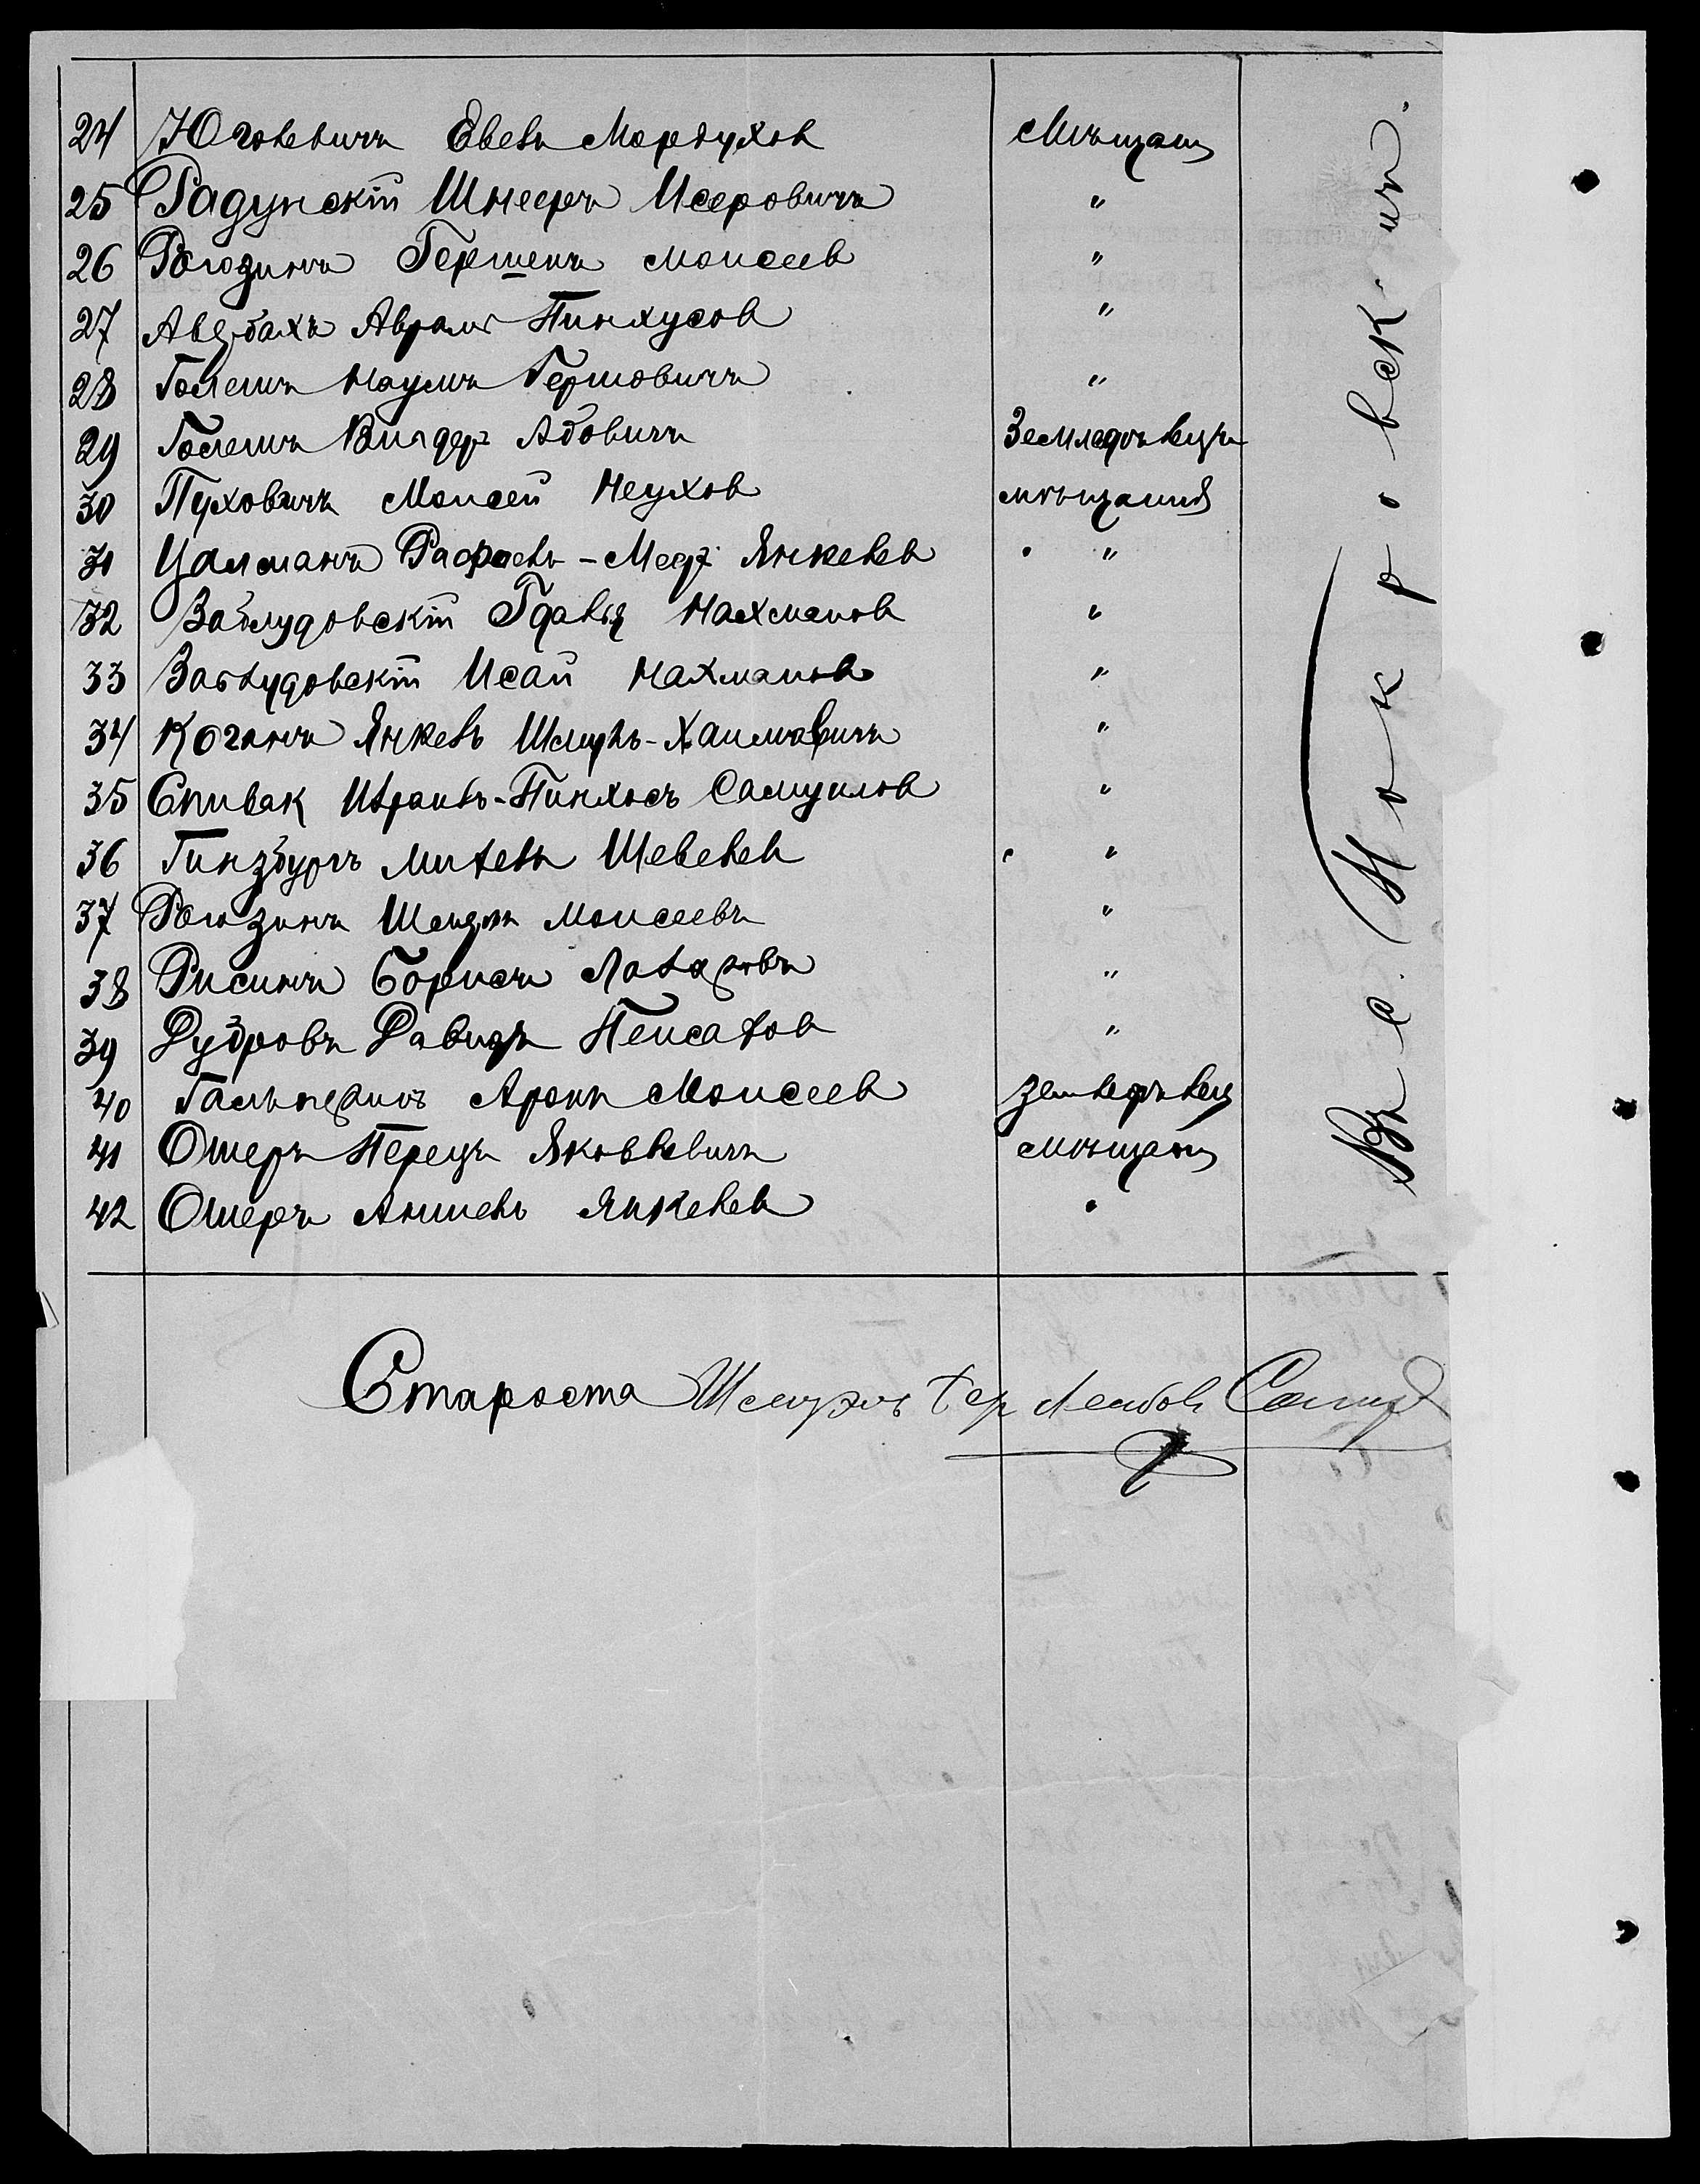 24 Юговичъ Евель Мордухов Мѣщан
25 Радунскій Шнееръ Исеровичъ "
26 Рогозинъ Гершенъ Моисеев "
27 Авербахъ Аврамъ Пинхусов "
28 Гослеинъ Наумъ Гершовичъ "
29 Гослеинъ Вигдер Абовичъ Земледѣлецъ
30 Пуховичъ Моисей Неухов мѣщанин
31 Цалманъ Рафаель-Меер Янкелев "
32 Заблудовскій Гдалья Нахманов "
33 Заблудовскій Исай Нахманов "
34 Коганъ Янкель Шмуль-Хаимовичъ "
35 Спивак Израиль-Пинхосъ Самуилов "
36 Гинзбургъ Михель Шевелев "
37 Рогозинъ Моисеевъ "
38 Рисинъ Борисъ Лазаровъ "
39 Дубровъ Давидъ Пейсахов "
40 Гальперинъ Аронъ Моисеев Земледѣлец
41 Ошеръ Перецъ Яковлевичъ мѣщан
42 Ошеръ Аншель Янкелев "
Въ с. Ново к р о в с к. ип.
Староста Шмуэль Гер Лейбов